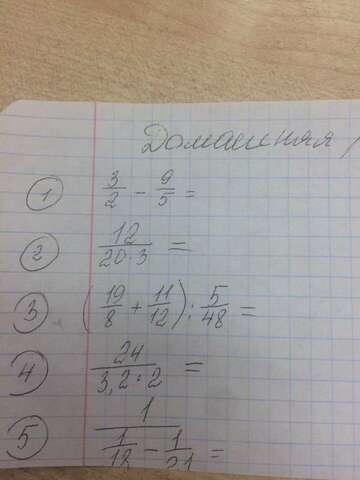 Домашняя
1 3/2 - 9/5 =
2 12/(20·3) =
3 (19/8 + 11/12) : 5/48 =
4 24/(3,2 : 2) =
5 1/(1/18 - 1/21) =